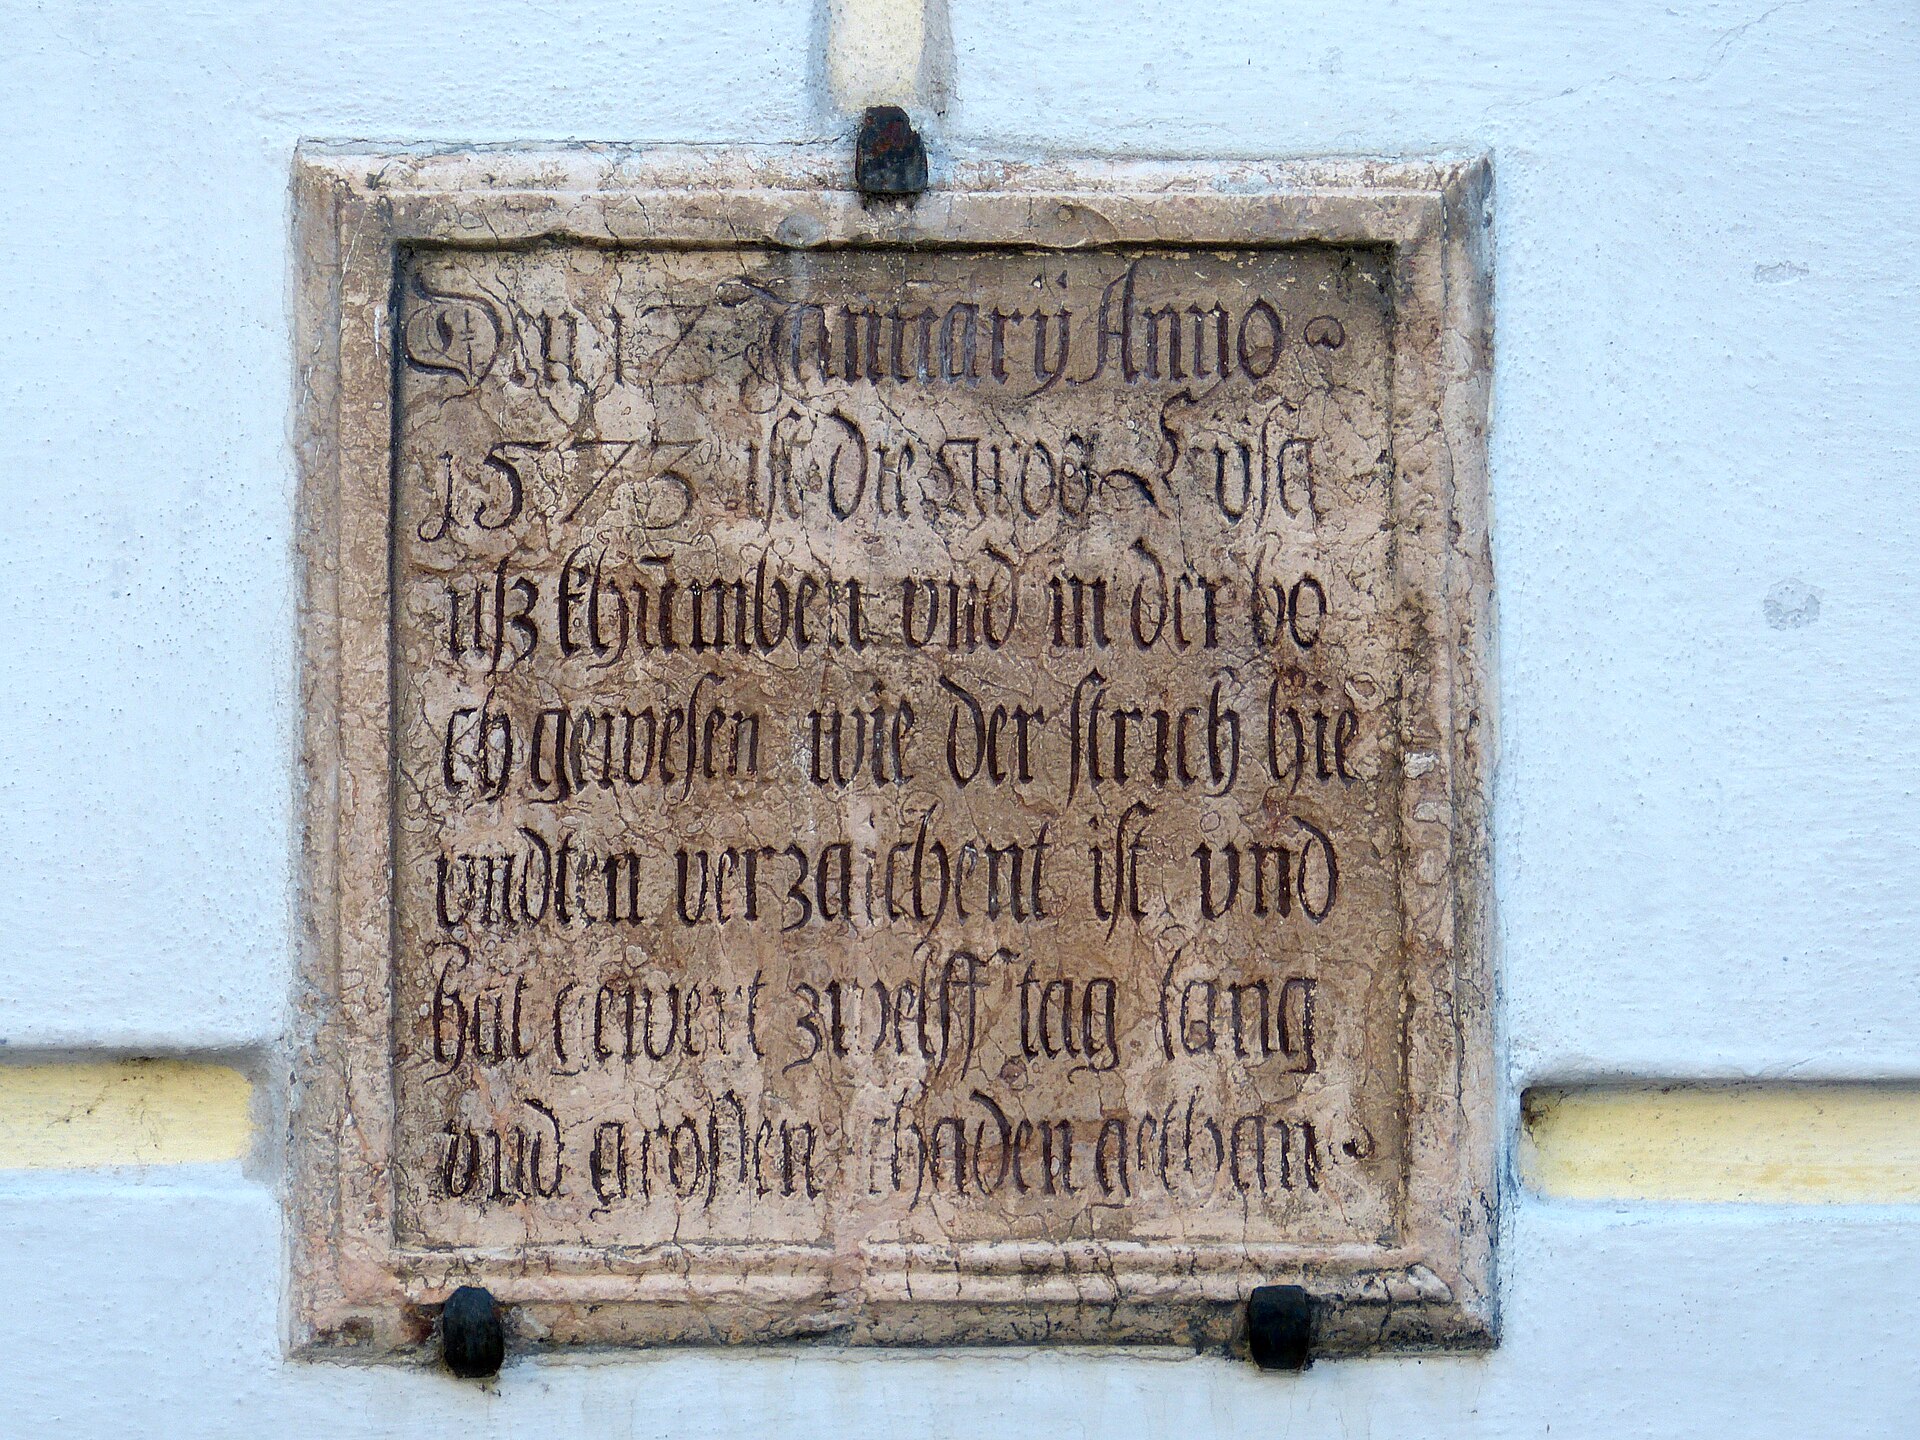 Den 12 Januarÿ Anno
1573 ist die gros Eÿsg
uß khūmben vnd in der ho
ch gewesen wie der strich hie
vndten verzaichent ist vnd
hat gewert zwelff tag lang
vnd grossen schaden gethan